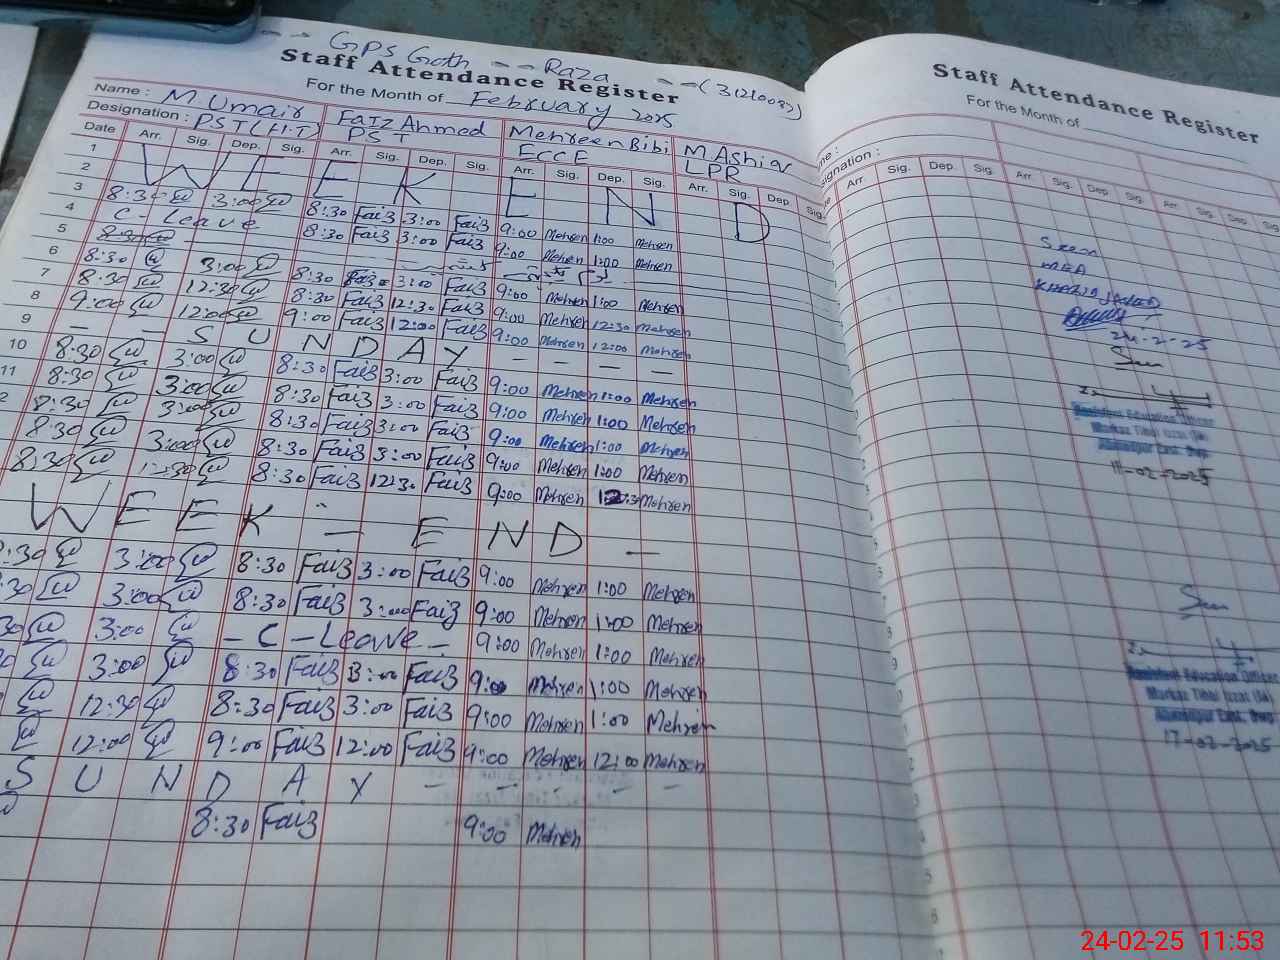 GPS Goth Raza (31210083)
Staff Attendance Register
For the Month of February 2025
Name : M. Umair Faiz Ahmed Mehreen Bibi M. Ashiq
Designation : PST (H.T) PST ECCE LPR
Date Arr. Sig. Dep. Sig. Arr. Sig. Dep. Sig. Arr. Sig. Dep. Sig. Arr. Sig. Dep. Sig.
1
2 W E E K E N D
3 8:30 3:00 8:30 Faiz 3:00 Faiz 9:00 Mehreen 1:00 Mehreen
4 C - Leave 8:30 Faiz 3:00 Faiz 9:00 Mehreen 1:00 Mehreen
5 8:30
6 8:30 3:00 8:30 Faiz 3:00 Faiz 9:00 Mehreen 1:00 Mehreen
7 8:30 12:30 8:30 Faiz 12:30 Faiz 9:00 Mehreen 12:30 Mehreen
8 9:00 12:00 9:00 Faiz 12:00 Faiz 9:00 Mehreen 12:00 Mehreen
9 — — S U N D A Y — — —
10 8:30 3:00 8:30 Faiz 3:00 Faiz 9:00 Mehreen 1:00 Mehreen
11 8:30 3:00 8:30 Faiz 3:00 Faiz 9:00 Mehreen 1:00 Mehreen
2 8:30 3:00 8:30 Faiz 3:00 Faiz 9:00 Mehreen 1:00 Mehreen
8:30 3:00 8:30 Faiz 3:00 Faiz 9:00 Mehreen 1:00 Mehreen
8:30 12:30 8:30 Faiz 12:30 Faiz 9:00 Mehreen 12:30 Mehreen
W E E K — E N D —
:30 3:00 8:30 Faiz 3:00 Faiz 9:00 Mehreen 1:00 Mehreen
:30 3:00 8:30 Faiz 3:00 Faiz 9:00 Mehreen 1:00 Mehreen
30 3:00 - C - Leave - 9:00 Mehreen 1:00 Mehreen
3:00 8:30 Faiz 3:00 Faiz 9:00 Mehreen 1:00 Mehreen
12:30 8:30 Faiz 3:00 Faiz 9:00 Mehreen 1:00 Mehreen
12:00 9:00 Faiz 12:00 Faiz 9:00 Mehreen 12:00 Mehreen
S U N D A Y - - - - -
8:30 Faiz 9:00 Mehreen
Staff Attendance Register
For the Month of
me :
signation :
Arr. Sig. Dep. Sig. Arr. Sig. Dep. Sig. Arr. Sig. Dep. Sig
Seen
MEA
KHALID JAVED
24-2-25
Seen
Assistant Education Officer
Markaz Tibbi Izzat (M)
Ahmedpur East, Bwp
11-02-2025
Seen
Assistant Education Officer
Markaz Tibbi Izzat (M)
Ahmedpur East, Bwp
17-02-2025
24-02-25 11:53